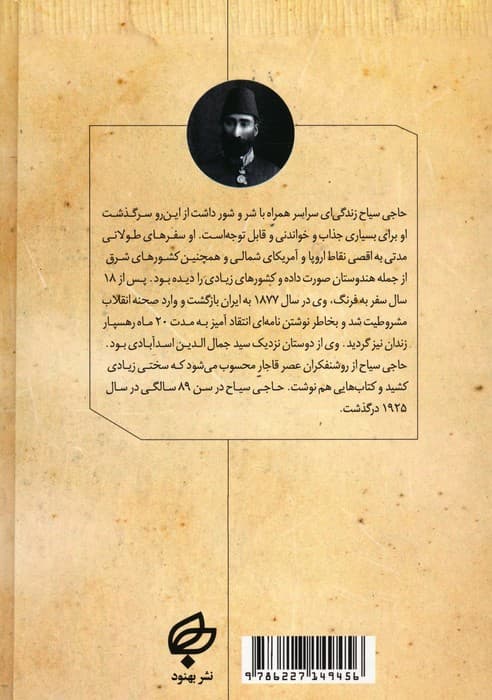 حاجی سیاح زندگی‌ای سراسر همراه با شر و شور داشت از این‌رو سرگذشت
او برای بسیاری جذاب و خواندنی و قابل توجه‌است. او سفرهای طولانی
مدتی به اقصی نقاط اروپا و آمریکای شمالی و همچنین کشورهای شرق
از جمله هندوستان صورت داده و کشورهای زیادی را دیده بود. پس از ۱۸
سال سفر به‌فرنگ، وی در سال ۱۸۷۷ به ایران بازگشت و وارد صحنه انقلاب
مشروطیت شد و بخاطر نوشتن نامه‌ای انتقاد آمیز به مدت ۲۰ ماه رهسپار
زندان نیز گردید. وی از دوستان نزدیک سید جمال الدین اسدآبادی بود.
حاجی سیاح از روشنفکران عصر قاجار محسوب می‌شود که سختی زیادی
کشید و کتاب‌هایی هم نوشت. حاجی سیاح در سن ۸۹ سالگی در سال
۱۹۲۵ درگذشت.
نشر بهنود
9786227149456